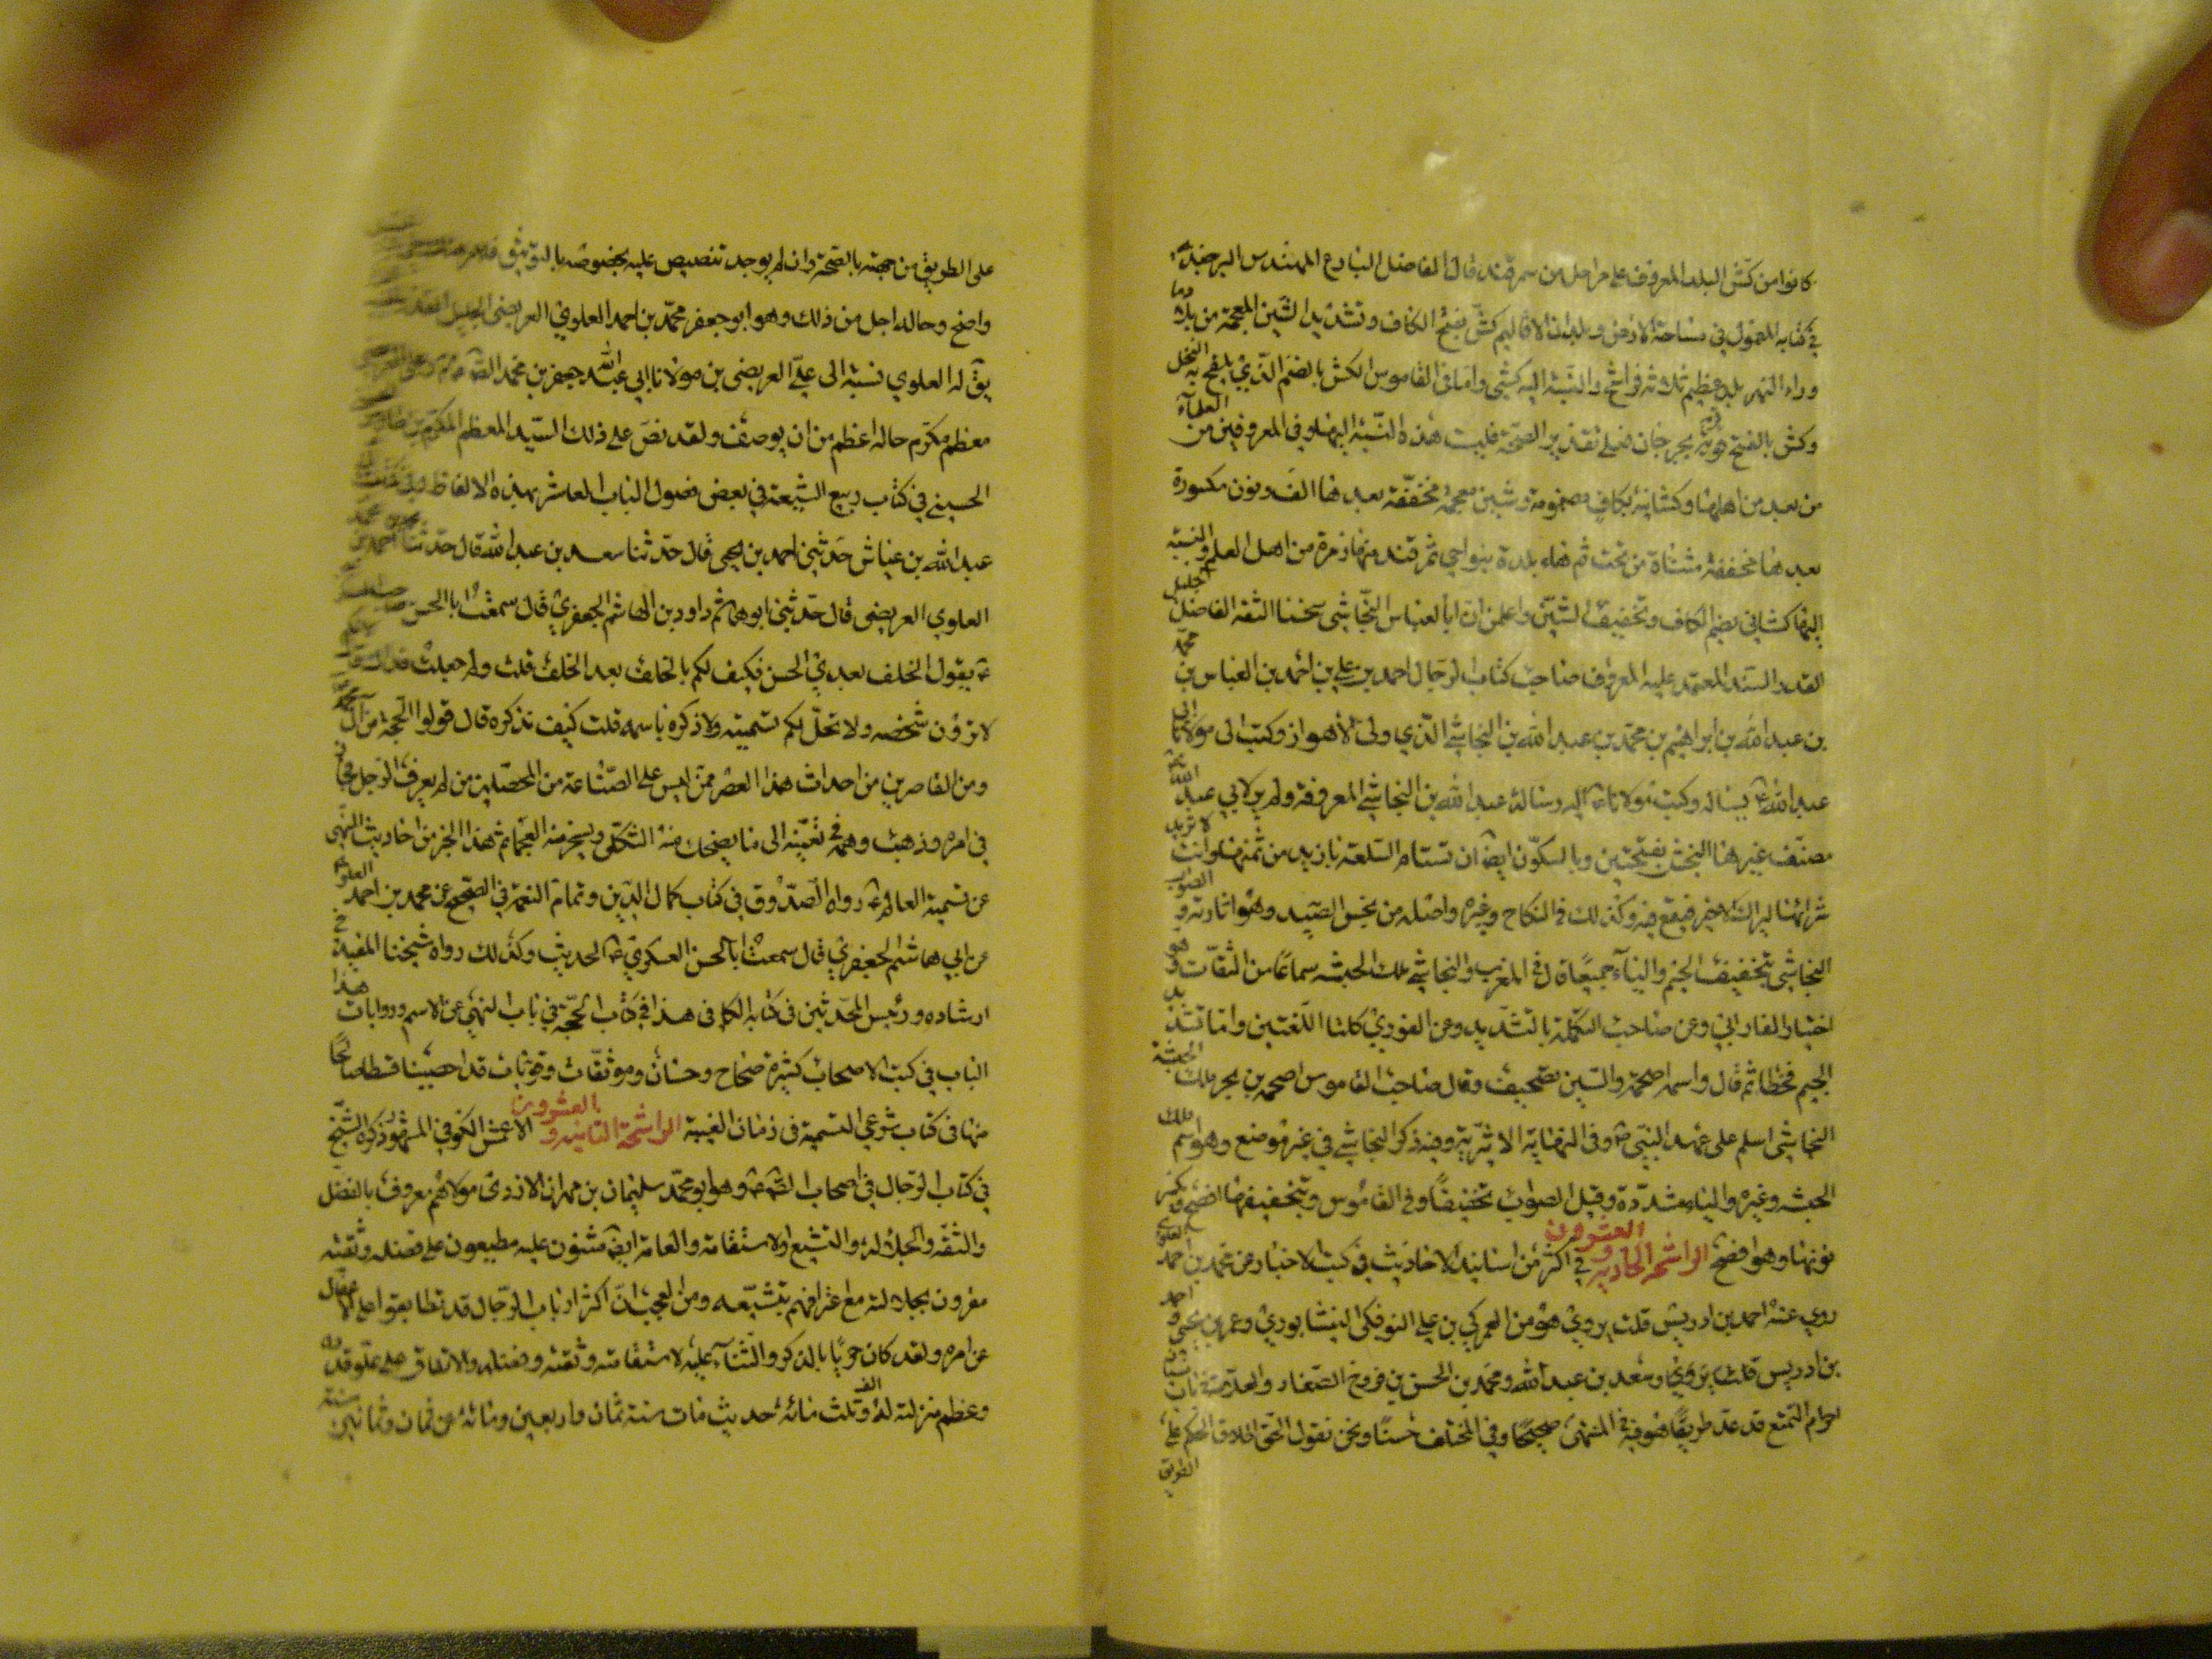 كانوا من كش البلد المعروف على مراحل من سمرقند قال الفاضل البارع المهندس البرجندي
في كتابه المعمول في مساحة الارض وبلدان الاقاليم كش بفتح الكاف وتشديد الشين المعجمة من بلاد وما
وراء النهر بلد عظيم ثلاثة فراسخ والنسبة اليه كشي واما في القاموس الكش بالضم الذي يلقح به النخل
وكش بالفتح قرية بجرجان فعلى تقدير الصحة فليست هذه النسبة اليها وفي المعروفين من العلماء
من يعد من اهلها وكشانية بكاف مضمومة وشين معجمة مخففة بعدها الف ونون مكسورة
بعدها مخففة مثناة من تحت ثم هاء بلدة بنواحي سمرقند منها زمرة من اهل العلم والنسبة
اليها كشاني بضم الكاف وتخفيف الشين واعلمن ان ابا العباس النجاشي شيخنا الثقة الفاضل الجليل
القدر السند المعتمد عليه المعروف صاحب كتاب الرجال احمد بن علي بن احمد بن العباس بن محمد
بن عبد الله بن ابراهيم بن محمد بن عبد الله بن النجاشي الذي ولي الاهواز وكتب الى مولانا ابي
عبد الله ع يساله وكتب مولانا ع اليه رسالة عبد الله بن النجاشي المعروفة ولم ير لابي عبد الله ع
مصنف غيرها النجش بفتحتين وبالسكون ايض ان تستام السلعة بازيد من ثمنها وانت لا تريد
شراءها ليراك الاخر فيقع فيه وكذلك في النكاح وغيره واصله من نجش الصيد وهو اثارته و الصواب
النجاشي بتخفيف الجيم والياء جميعا قال في المغرب والنجاشي ملك الحبشة سماعا من الثقات وهو
اختيار الفارابي وعن صاحب التكملة بالتشديد وعن الغوري كلتا اللغتين واما تشديد
الجيم فخطا ثم قال واسمه اصحمة والسين تصحيف وقال صاحب القاموس اصحمة بن بحر ملك الحبشة
النجاشي اسلم على عهد النبي ص وفي النهاية الاثيرية وفيه ذكر النجاشي في غير موضع وهو اسم ملك
الحبشة وغيره والياء مشددة وقيل الصواب تخفيفها وفي القاموس وبتخفيفها افصح وتكسر
نونها وهو افصح الراشحة الحادية و العشرون في اكثر من اسانيد الاحاديث في كتب الاخبار عن محمد بن احمد العلوي
روى عنه احمد بن ادريس قلت يروي هو من العمركي بن علي البوفكي النيشابوري وعمر بن يحيى و احمد
بن ادريس قلت يروي وسعد بن عبد الله ومحمد بن الحسن بن فروخ الصفار والعلامة
احرام التمتع قد عد طريقا هو فيه في المنتهى صحيحا وفي المختلف حسنا ونحن نقول الحق اطلاق الحكم على
الطريق
على الطريق من جهته بالصحة وان لم يوجد تنصيص عليه بخصوصه بالتوثيق
واضح وحاله اجل من ذلك وهو ابو جعفر محمد بن احمد العلوي العريضي الجليل القدر
يق له العلوي نسبة الى علي العريضي بن مولانا ابي عبد الله جعفر بن محمد الص
معظم مكرم حاله اعظم من ان يوصف ولقد نص على ذلك السيد المعظم المكرم بن طاوس
الحسيني في كتاب ربيع الشيعة في بعض فصول الباب العاشر بهذه الالفاظ
عبد الله بن عياش حدثني احمد بن يحيى قال حدثنا سعد بن عبد الله قال حدثنا محمد بن احمد
العلوي العريضي قال حدثني ابو هاشم داود بن القاسم الجعفري قال سمعت ابا الحسن
ع يقول الخلف بعدي الحسن فكيف لكم بالخلف بعد الخلف قلت ولم جعلت فداك قال
لا ترون شخصه ولا تحل لكم تسميته ولا ذكره باسمه قلت كيف نذكره قال قولوا الحجة من آل محمد
ومن القاصرين من احداث هذا العصر ممن ليس على الصناعة من المحصلين من لم يعرف الرجل
في امره وذهب وهمه في تعيينه الى ما يضحك منه الثكلى ويسخر منه العجماء ثم هذا الخبر من احاديث النهي
عن تسمية القائم ع رواه الصدوق في كتاب كمال الدين وتمام النعمة في الصحيح عن محمد بن احمد العلوي
عن ابي هاشم الجعفري قال سمعت ابا الحسن العسكري ع الحديث وكذلك رواه شيخنا المفيد في
ارشاده ورئيس المحدثين في كتابه الكافي هذا في كتاب الحجة في باب النهي عن الاسم وروايات هذا
الباب في كتب الاصحاب كثيرة صحاح وحسان وموثقات وقويات قد احصينا قسطا صالحا
منها في كتاب شرعي التسمية في زمان الغيبة الراشحة الثانية و العشرون الاعمش الكوفي المشهور ذكره الشيخ
في كتاب الرجال في اصحاب الص ع وهو ابو محمد سليمان بن مهران الازدي مولاهم معروف بالفضل
والثقة والجلالة والتشيع والاستقامة والعامة ايض مثنون عليه مطبعون على فضله وثقته
مقرون بجلالته مع اعترافهم بتشيعه ومن العجب ان اكثر ارباب الرجال قد تطابقوا على اغفال
عن امره ولقد كان حريا بالذكر والثناء عليه لاستقامته وثقته وفضله والاتفاق على علو قدره
وعظم منزلته له الف وثلث مائة حديث مات سنة ثمان واربعين ومائة عن ثمان وثمانين سنة